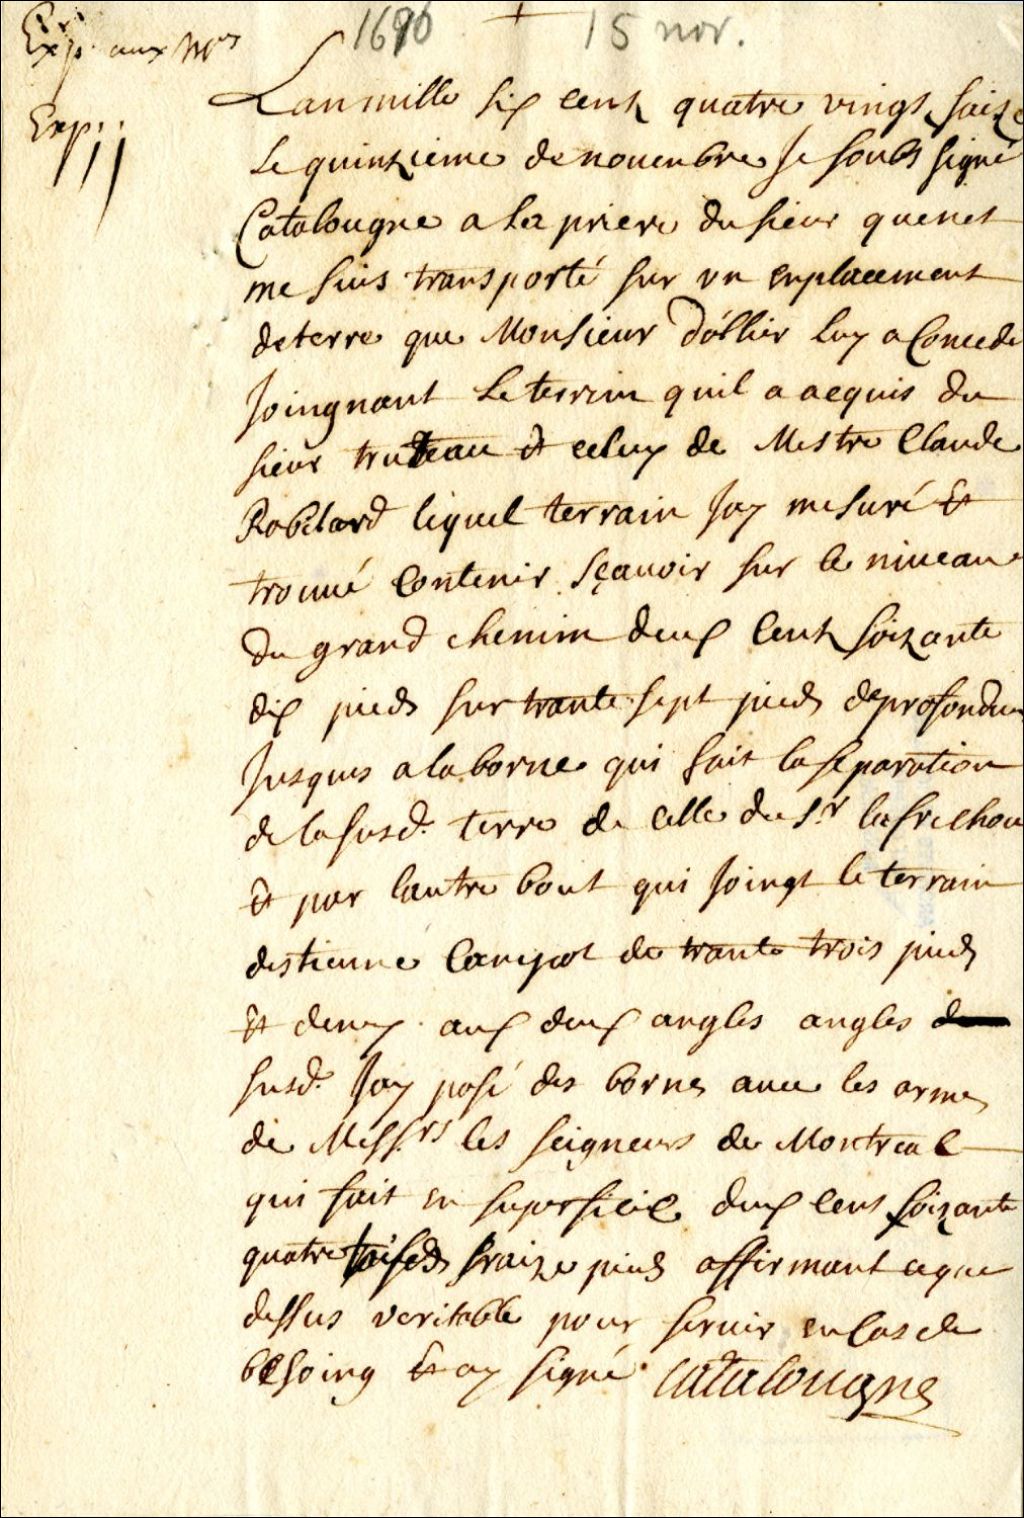 1696 + 15 nov.
Exp. aux mrs
Exp.
Lanmille six cent quatre vingt saize
Le quinzieme de nouenbre Je soubs signé
Catalougne a la priere du sieur quenet
me suis transporté sur vn enplacement
deterre que Monsieur dollier luy a Concede
Joingnant le terrain quil a acquis du
sieur truteau & celuy de Mestre Claude
Robilard lequel terrain Jay mesuré &
trouué Contenir sçauoir sur le niueau
du grand chemin deux Cent soizante
dix pieds sur trante sept pieds deprofondeur
Jusques a la borne qui fait la separation
de la susd. terre de celle du Sr. la
& par lautre bout qui Joingt le terrain
destienne Campot de trante trois pieds
& demy aux deux angles angles
susd. Jay posé des bornes auec les armes
de Messrs les seigneurs de Montreal
qui fait en superficie deux Cent soizante
quatre toises saize pieds affirmant ceque
dessus veritable pour seruir en Cas de
besoing & ay signé Catalougne